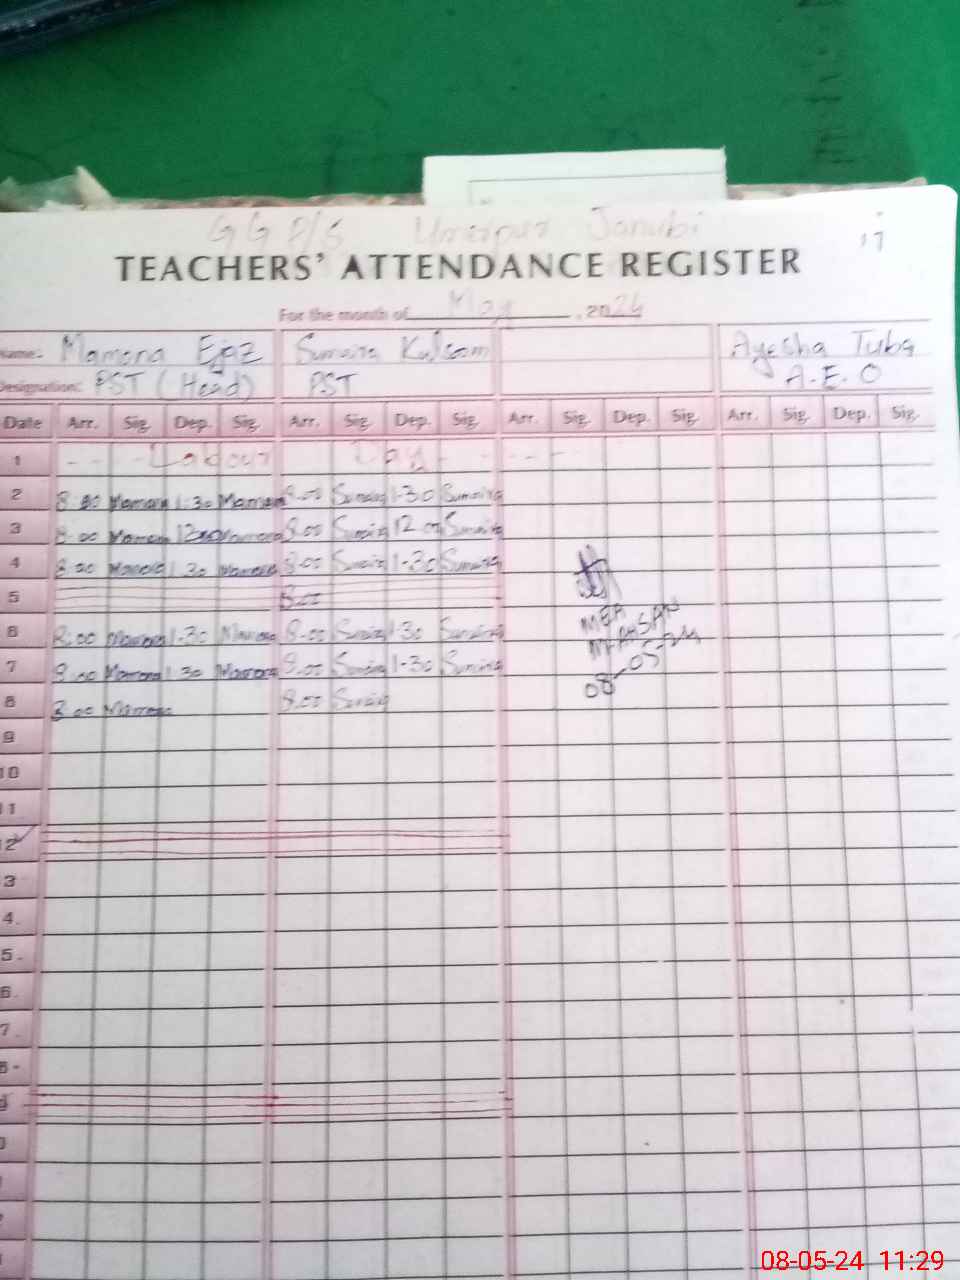 GG P/S Umerpur Janubi
17
TEACHERS' ATTENDANCE REGISTER
For the month of May, 2024
Name: Mamona Ejaz Sumaira Kulsoom Ayesha Tuba
Designation: PST (Head) PST A.E.O
Date Arr. Sig. Dep. Sig. Arr. Sig. Dep. Sig. Arr. Sig. Dep. Sig. Arr. Sig. Dep. Sig.
1 Labour Day
2 8:00 Mamona 1:30 Mamona 8.00 Sumaira 1-30 Sumaira
3 8:00 Mamona 12:00 Mamona 8.00 Sumaira 12.00 Sumaira
4 8:00 Mamona 1:30 Mamona 8.00 Sumaira 1-30 Sumaira
5 8.00
6 8:00 Mamona 1-30 Mamona 8.00 Sumaira 1-30 Sumaira
7 8:00 Mamona 1:30 Mamona 8.00 Sumaira 1-30 Sumaira
8 8:00 Mamona 8.00 Sumaira
MEA
M-AHSAN
08-05-24
9
10
11
12
3
4.
5.
6.
7.
8-
08-05-24 11:29